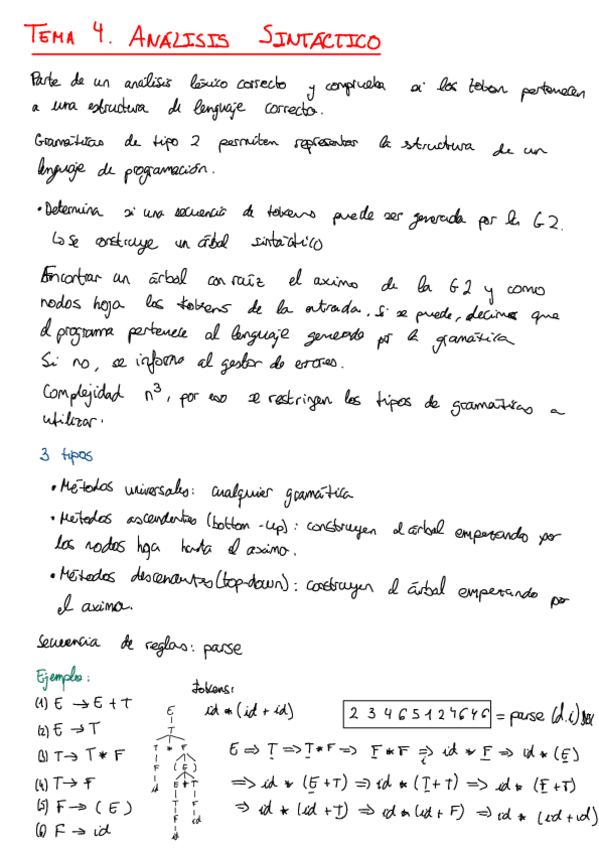 TEMA 4. ANÁLISIS SINTÁCTICO
Parte de un análisis léxico correcto y comprueba si los token pertenecen
a una estructura de lenguaje correcta.
Gramáticas de tipo 2 permiten representar la structura de un
lenguaje de programación.
• Determina si una secuencia de tokens puede ser generada por la G2.
↳ Se construye un árbol sintáctico
Encontrar un árbol con raíz el axioma de la G2 y como
nodos hoja los tokens de la entrada. Si se puede, decimos que
el programa pertenece al lenguaje generado por la gramática
Si no, se informa al gestor de errores.
Complejidad n³, por eso se restringen los tipos de gramáticas a
utilizar.
3 tipos
• Métodos universales: cualquier gramática
• Métodos ascendentes (bottom-up): construyen el árbol empezando por
los nodos hoja hasta el axioma.
• Métodos descendentes (top-down): construyen el árbol empezando por
el axioma.
Secuencia de reglas: parse
Ejemplo:
tokens:
id * (id + id)
2 3 4 6 5 1 2 4 6 4 6 = parse (d.i)
(1) E → E + T
(2) E → T
(3) T → T * F
(4) T → F
(5) F → (E)
(6) F → id
E
T
T * F
F ( E )
id E + T
T F
F id
id
E ⇒ T ⇒ T * F ⇒ F * F ⇒ id * F ⇒ id * (E)
⇒ id * (E + T) ⇒ id * (T + T) ⇒ id * (F + T)
⇒ id * (id + T) ⇒ id * (id + F) ⇒ id * (id + id)